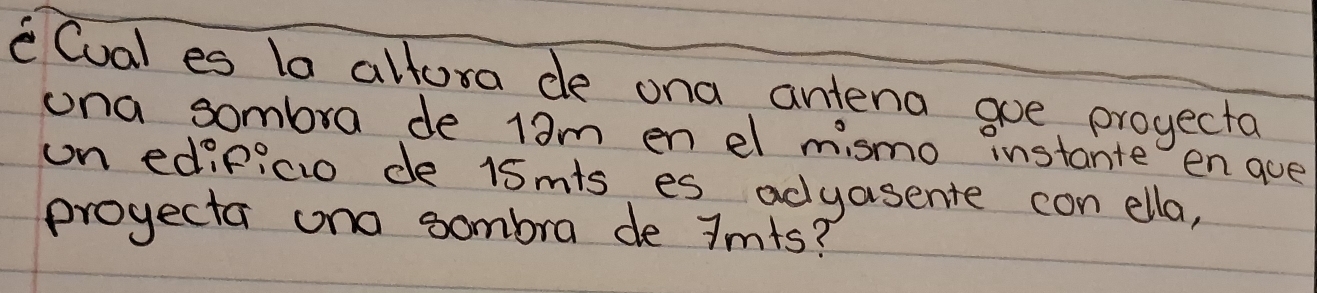 ¿Cual es la altura de una antena que proyecta
una sombra de 12m en el mismo instante en que
un edificio de 15mts es adyasente con ella,
proyecta una sombra de 7mts?